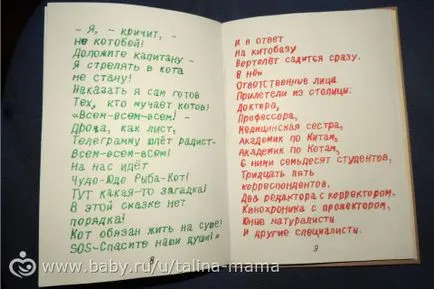 - Я, - кричит, -
не котобой!
Доложите капитану -
Я стрелять в кота
не стану!
Наказать я сам готов
Тех, кто мучает котов!
«Всем-всем-всем! -
Дрожа, как лист,
Телеграмму шлёт радист.
Всем-всем-всем!
На нас идёт
Чудо-Юдо Рыба-Кот!
Тут какая-то загадка!
В этой сказке нет
порядка!
Кот обязан жить на суше!
SOS-Спасите наши души!»
8
И в ответ
на китобазу
Вертолёт садится сразу.
В нём
Ответственные лица
Прилетели из столицы:
Доктора,
Профессора,
Медицинская сестра,
Академик по Китам,
Академик по Котам,
С ними семьдесят студентов,
Тридцать пять
корреспондентов,
Два редактора с корректором,
Кинохроника с прожектором,
Юные натуралисты
И другие специалисты.
9
www.baby.ru/u/talina-mama